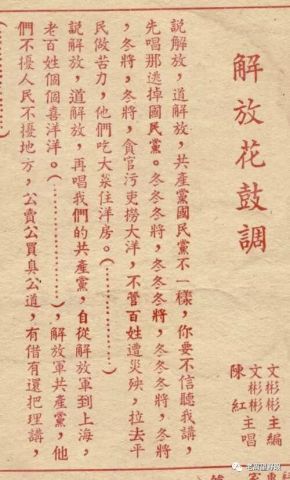 解放花鼓調
文彬彬主編
文彬彬
陳紅主唱
說解放，道解放，共產黨國民黨不一樣，你要不信聽我講，
先唱那逃掉國民黨。冬冬冬將，冬冬冬將，冬冬冬將，冬將
，冬將，冬將，貪官污吏撈大洋，不管百姓遭災殃，拉去平
民做苦力，他們吃大菜住洋房。（…………）
說解放，道解放，再唱我們的共產黨，自從解放軍到上海，
老百姓個個喜洋洋。（…………），解放軍共產黨，他
們不擾人民不擾地方，公賣公買真公道，有借有還把理講，
（…………）